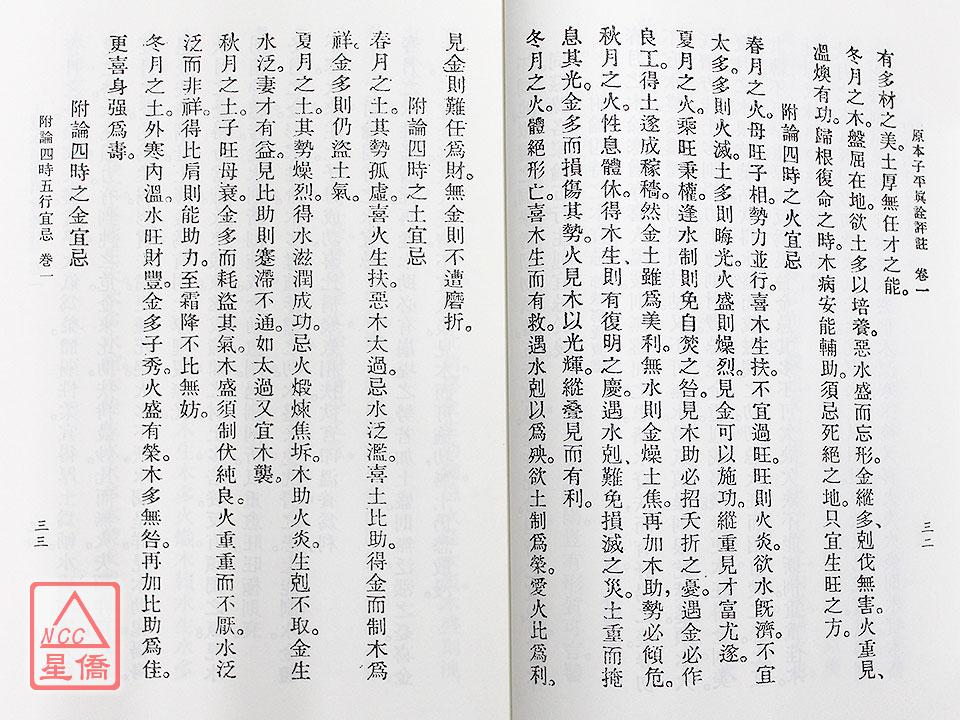 原本子平眞詮評註 卷一
三二
有多材之美。土厚無任才之能。
冬月之木。盤屈在地。欲土多以培養。惡水盛而忘形。金縱多、剋伐無害。火重見、
溫燠有功。歸根復命之時。木病安能輔助。須忌死絕之地。只宜生旺之方。
附論四時之火宜忌
春月之火。母旺子相。勢力並行。喜木生扶。不宜過旺。旺則火炎。欲水旣濟。不宜
太多。多則火滅。土多則晦光。火盛則燥烈。見金可以施功。縱重見才富尤遂。
夏月之火。乘旺秉權。逢水制則免自焚之咎。見木助必招夭折之憂。遇金必作
良工。得土遂成稼穡。然金土雖爲美利。無水則金燥土焦。再加木助。勢必傾危。
秋月之火。性息體休。得木生、則有復明之慶。遇水剋、難免損滅之災。土重而掩
息其光。金多而損傷其勢。火見木以光輝。縱叠見而有利。
冬月之火。體絕形亡。喜木生而有救。遇水剋以爲殃。欲土制爲榮。愛火比爲利。
見金則難任爲財。無金則不遭磨折。
附論四時之土宜忌
春月之土。其勢孤虛。喜火生扶。惡木太過。忌水泛濫。喜土比助。得金而制木爲
祥。金多則仍盜土氣。
夏月之土。其勢燥烈。得水滋潤成功。忌火煅煉焦坼。木助火炎。生剋不取。金生
水泛。妻才有益。見比助則蹇滯不通。如太過又宜木襲。
秋月之土。子旺母衰。金多而耗盜其氣。木盛須制伏純良。火重重而不厭。水泛
泛而非祥。得比肩則能助力。至霜降不比無妨。
冬月之土。外寒內溫。水旺財豐。金多子秀。火盛有榮。木多無咎。再加比助爲佳。
更喜身强爲壽。
附論四時之金宜忌
附論四時五行宜忌 卷一
三三
NCC
星僑